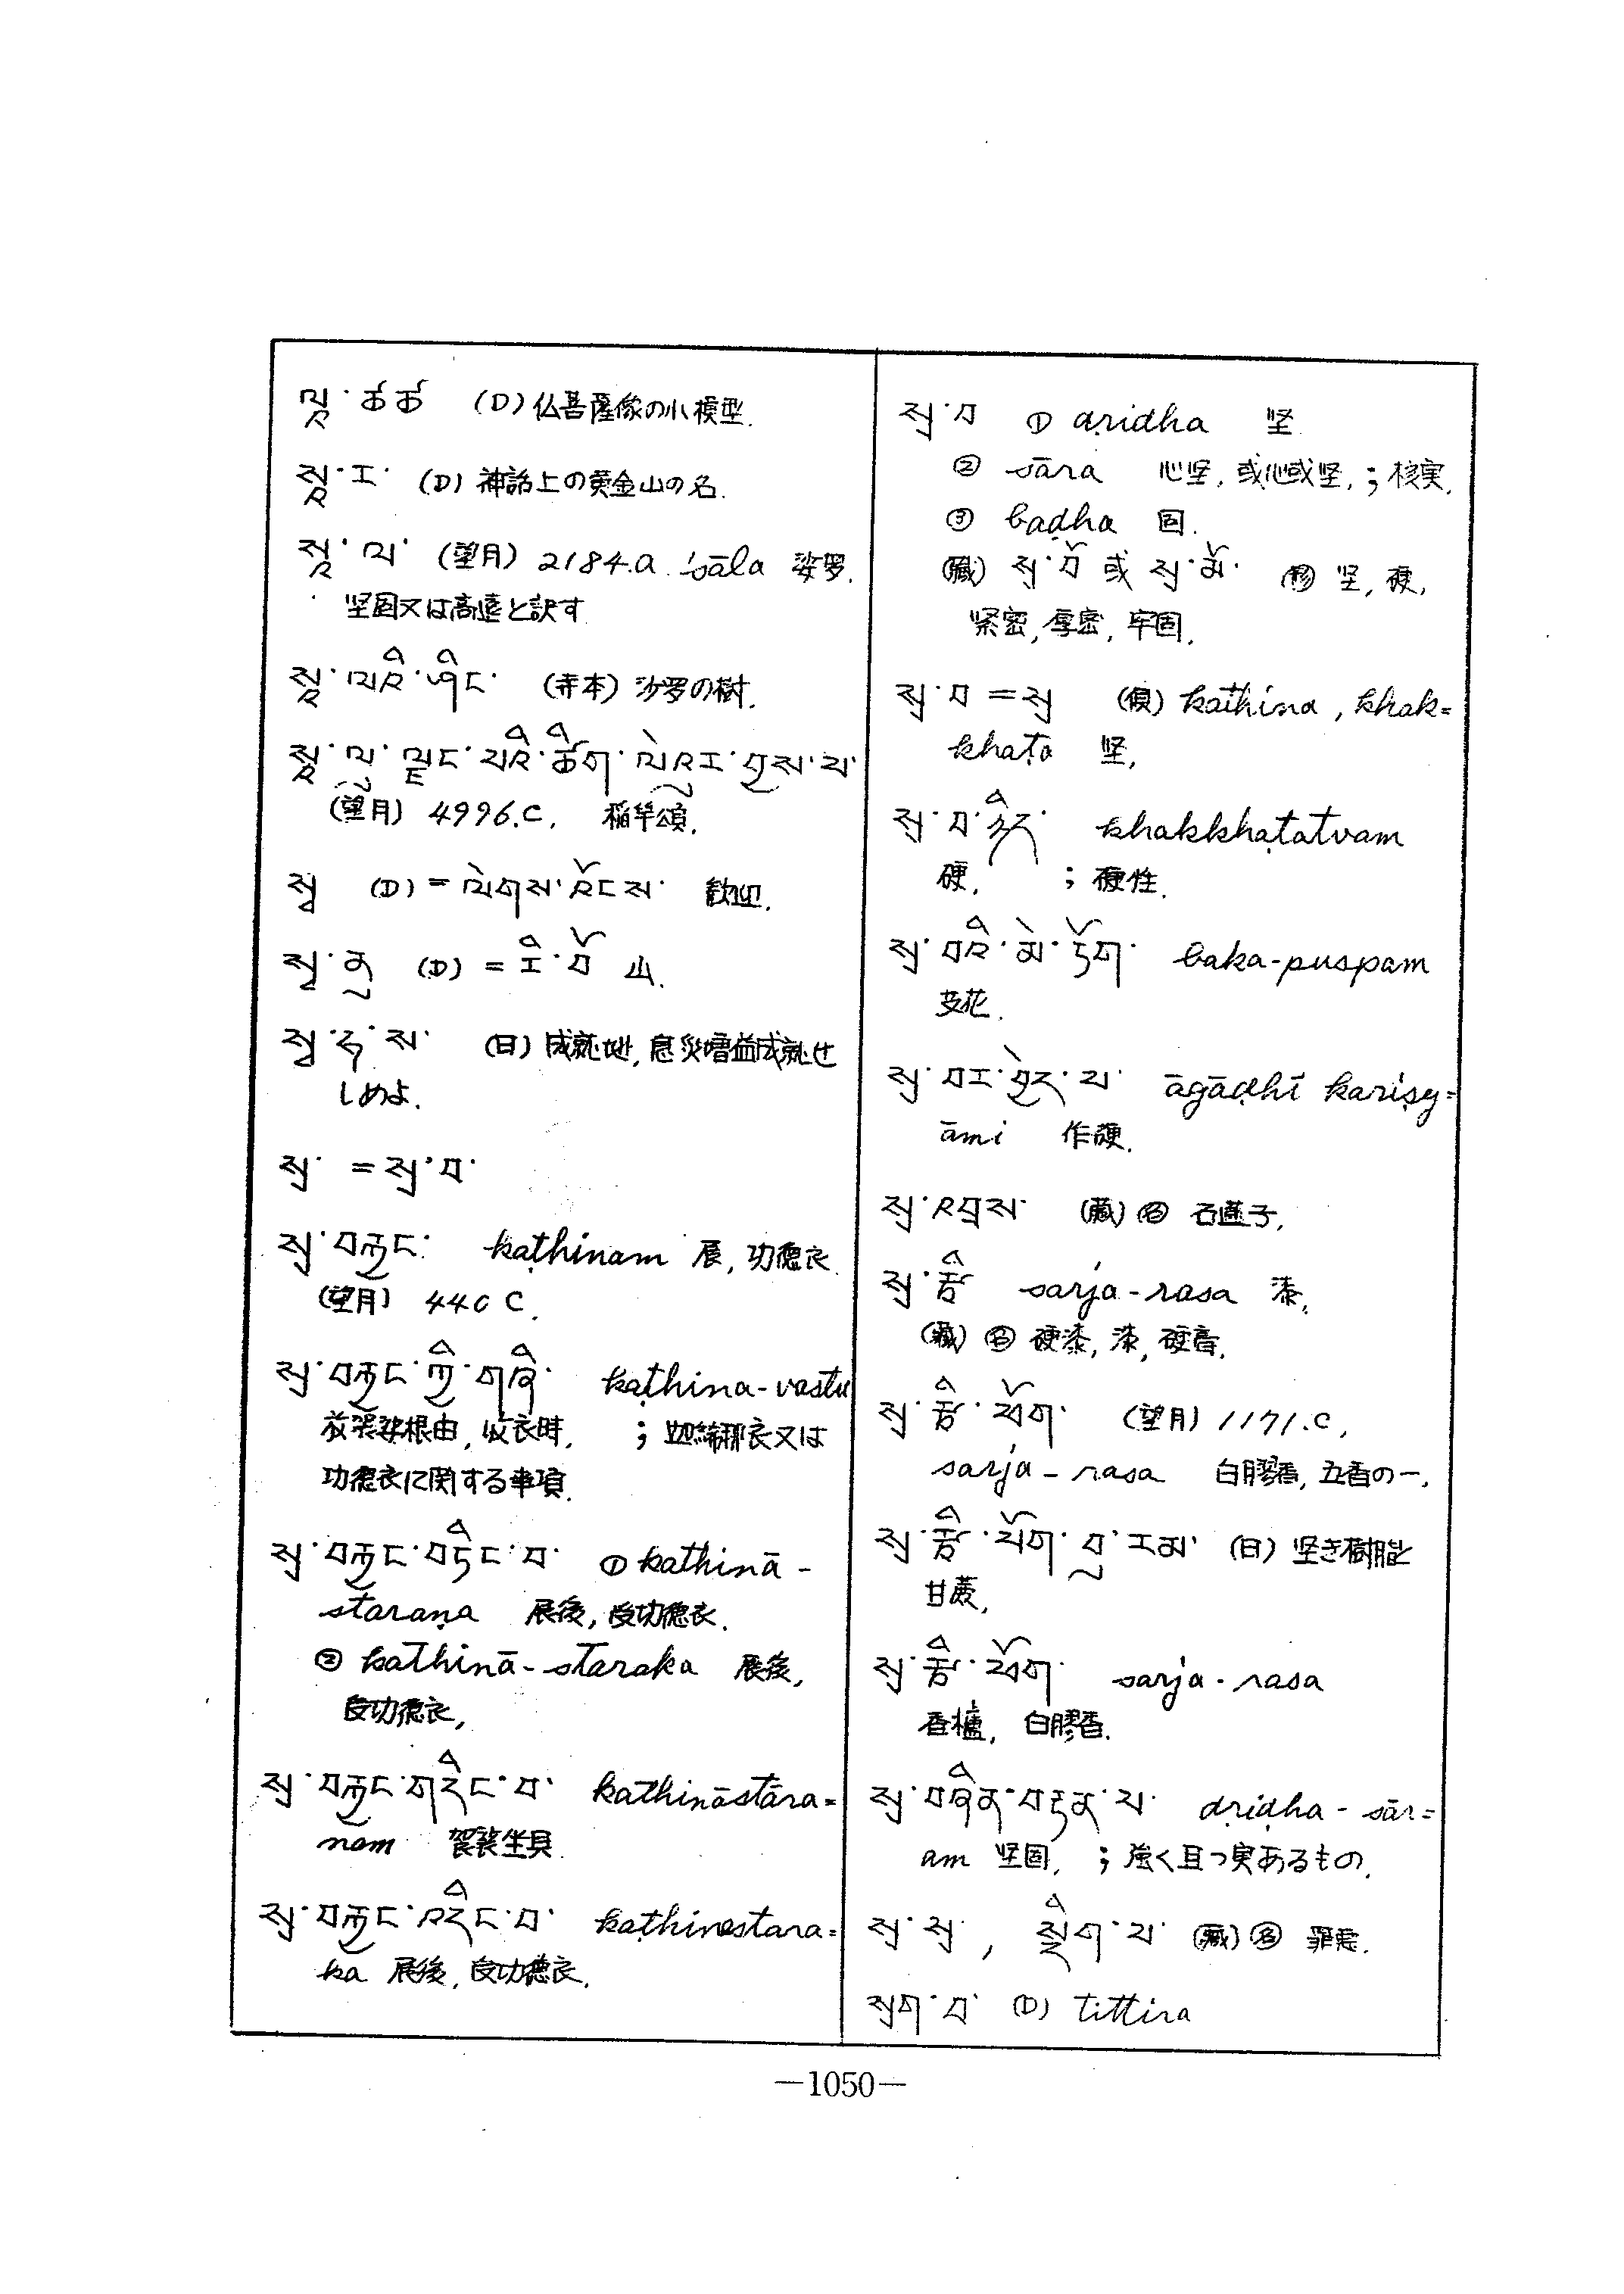 སཱ་ཙྪ (D) 仏菩薩像の小模型.
སཱ་ར་ (D) 神話上の黄金山の名.
སཱ་ལ་ (望月) 2184.a. śāla 娑罗.
坚固又は高遠と訳す
སཱ་ལའི་ཤིང་ (赤本) 沙罗の樹.
(望月) 4996.C. 稲芉頌.
སྭ (D) = ལེགས་འོངས་ 歓迎.
(D) = རི་བོ 山.
སྭ་ཧཱ་ (日) 成就地, 息災増益成就せ
しめよ.
སྲ་ = སྲ་བ་
སྲ་བརྐྱང་ kaṭhinam 展, 功德衣.
(望月) 440 C.
སྲ་བརྐྱང་ཀྱི་གཞི་ kaṭhina-vastu
放袈娑根由, 收衣時, ; 迦絺那衣又は
功德衣に関する事項.
སྲ་བརྐྱང་བཏིང་བ་ ① kathinā-
staraṇa 展後, 受功德衣.
② kathinā-staraka 展後,
受功德衣,
སྲ་བརྐྱང་གདིང་བ་ kathināstāra=
nam 袈裟坐具
སྲ་བརྐྱང་འདིང་བ་ kaṭhinestara=
ka 展後, 受功德衣.
སྲ་བ ① dṛidha 坚
② sāra 心坚, 或心或坚, ; 核実.
③ badha 固.
(藏) སྲ་བོ 或 སྲ་མོ་ 坚, 硬,
紧密, 厚密, 牢固.
སྲ་བ = སྲ (倶) kathina, khak=
khaṭa 坚,
སྲ་བ་ཉིད་ khakkhaṭatvam
硬, ; 硬性.
སྲ་བའི་མེ་ཏོག་ baka-puspam
芰花.
སྲ་བར་བྱེད་པ་ āgāḍhī kariṣy=
āmi 作硬.
སྲ་འབྲས་ (藏) ㊔ 石蓮子.
སྲ་རྩི sarja-rasa 漆,
(藏) ㊔ 硬漆, 漆, 硬膏.
སྲ་རྩི་སྤོག་ (望月) 1171.C,
sarja-rasa 白膠香, 五香の一,
(日) 坚き樹脂と
甘蔗,
sarja-rasa
香櫨, 白膠香.
སྲ་བཞིན་བརྟན་པ་ dṛiḍha-sār=
am 坚固, ; 強く且つ実あるもの.
སྲ་སྲ་, སྡིག་པ་ (藏) ㊔ 罪悪.
སྲག་པ་ (D) tittira
—1050—